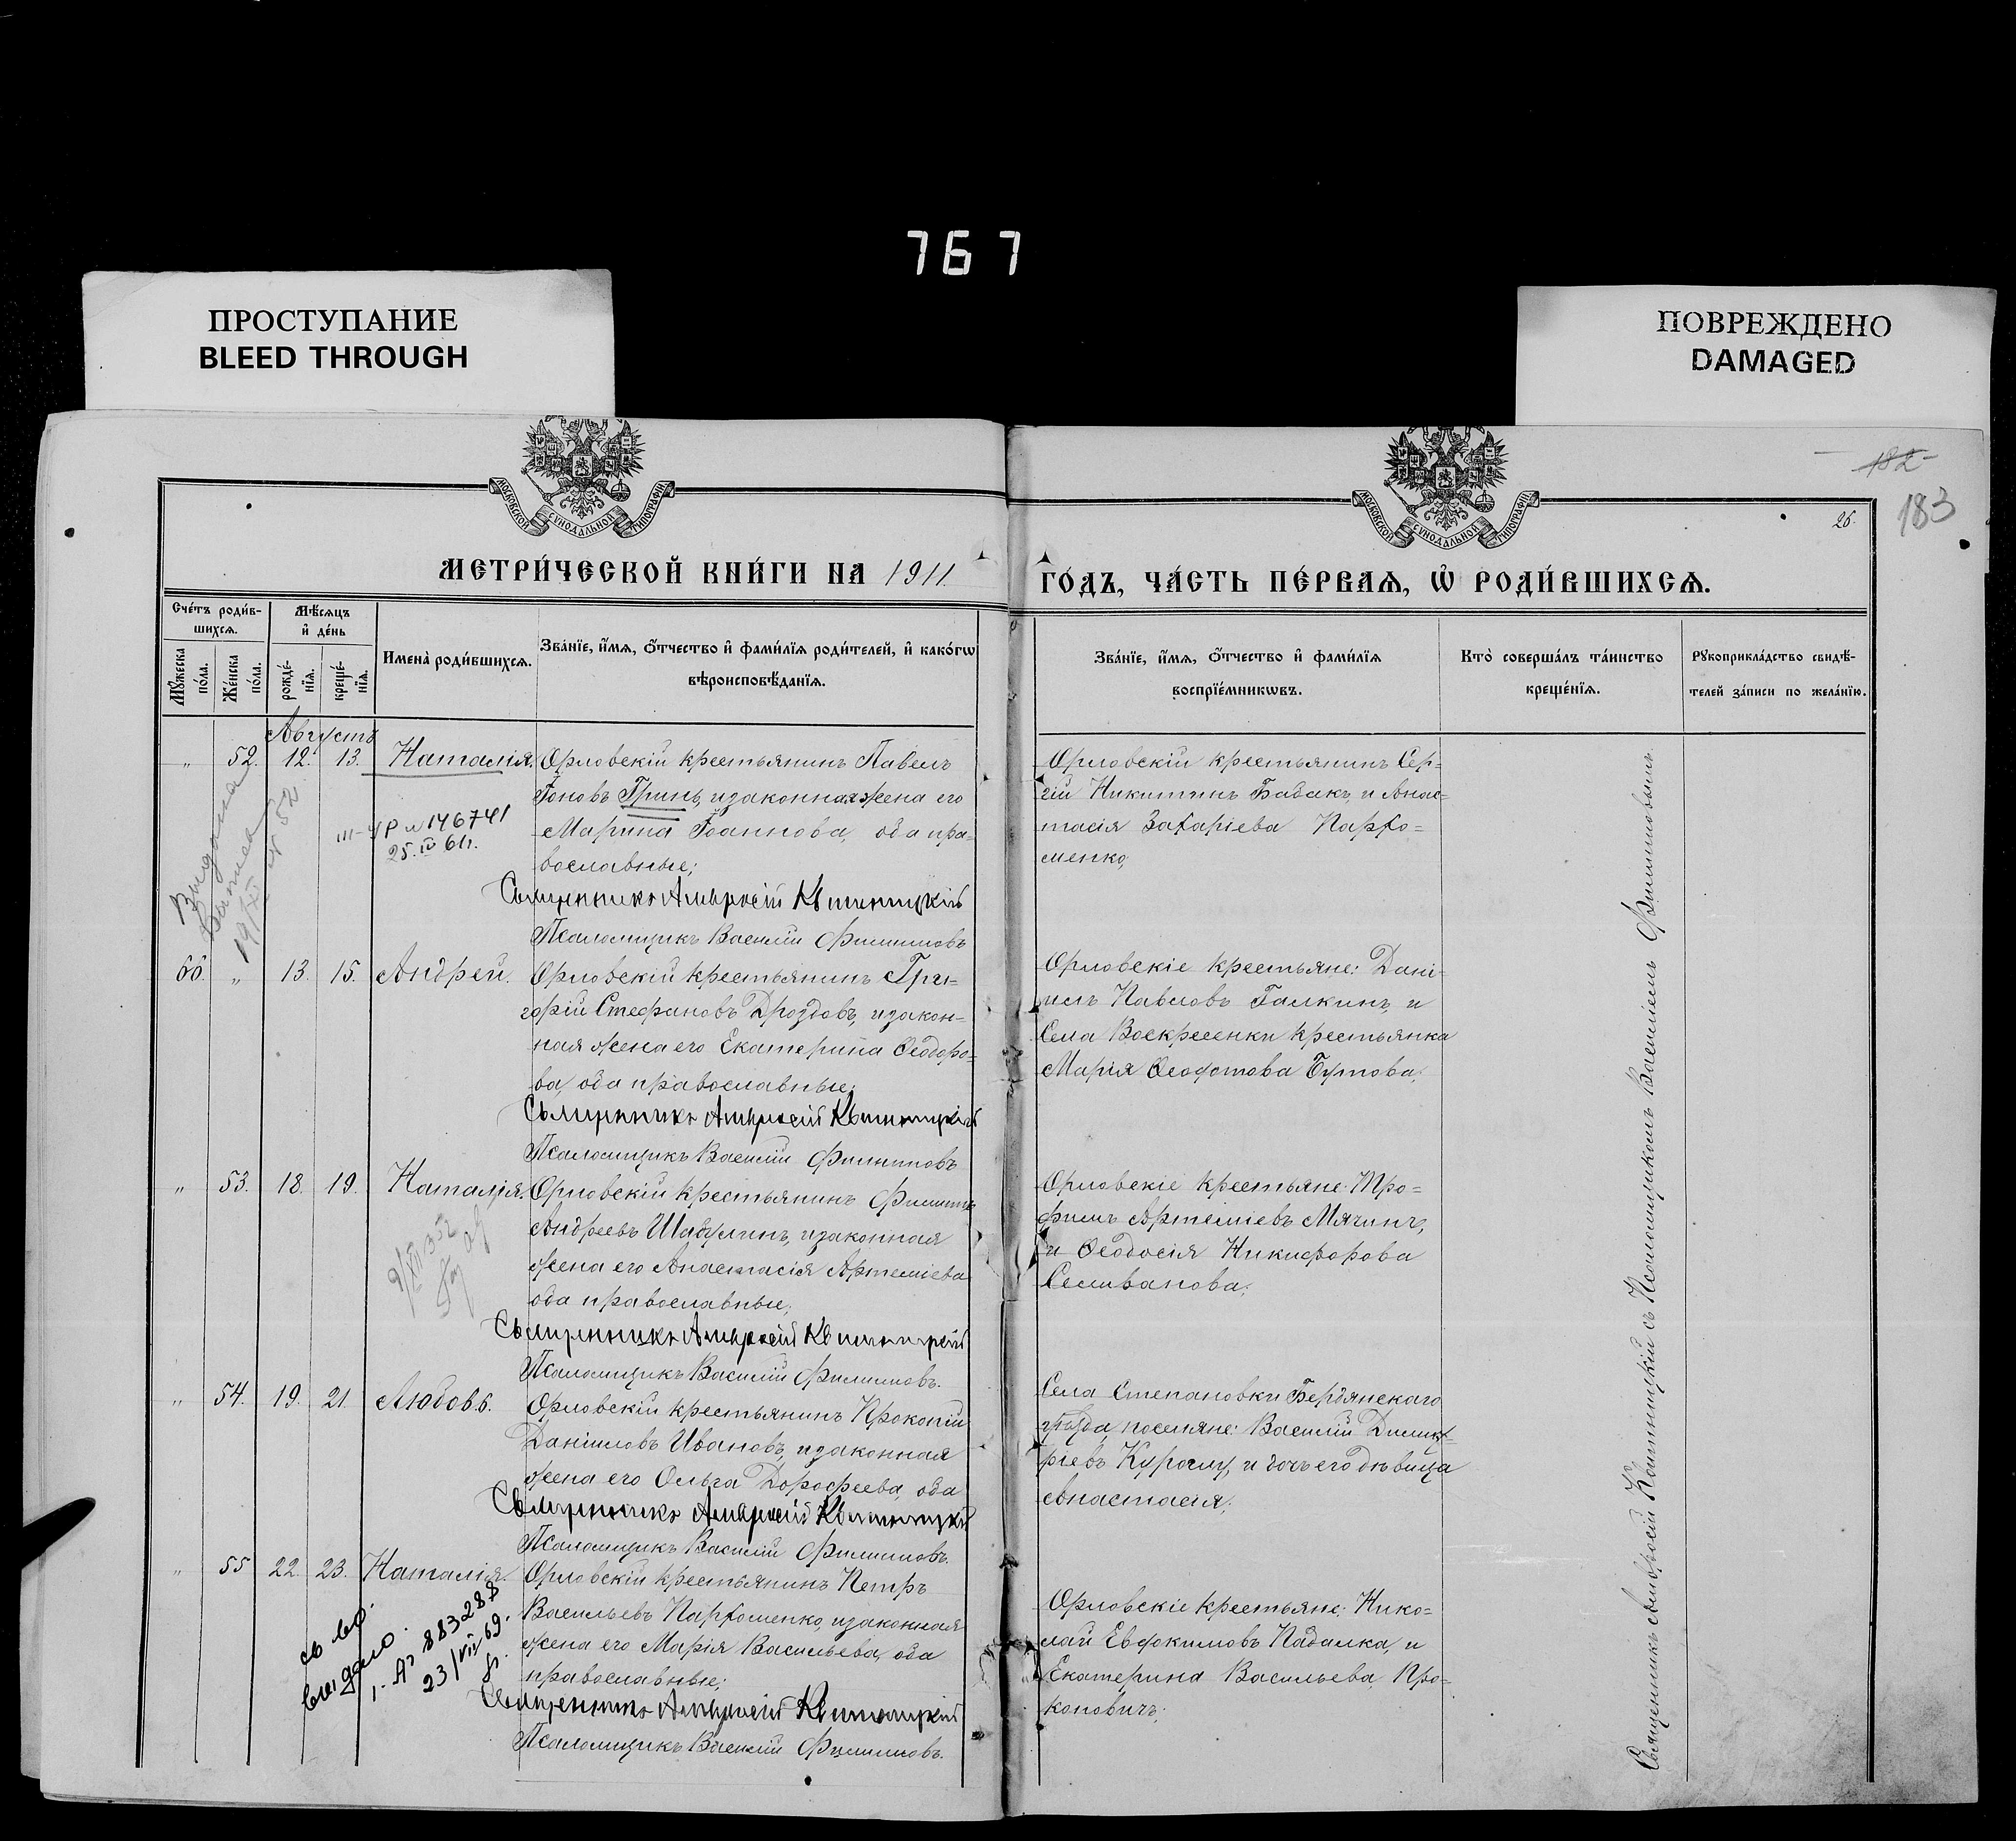 767
ПРОСТУПАНИЕ
BLEED THROUGH
ПОВРЕЖДЕНО
DAMAGED
МОСКОВСКОЙ СѴНОДАЛЬНОЙ ТИПОГРАФІИ
МОСКОВСКОЙ СѴНОДАЛЬНОЙ ТИПОГРАФІИ
182
183
26.
МЕТРИ́ЧЕСКОЙ КНИ́ГИ НА 1911.
ГО́ДЪ, ЧА́СТЬ ПЕ́РВАѦ, Ѡ РОДИ́ВШИХСѦ.
Сче́тъ роди́в-
шихсѧ.
Мѣ́сѧцъ
и҆ де́нь
Мꙋ́жеска
по́ла.
Же́нска
по́ла.
рожде́-
нїѧ.
креще́-
нїѧ.
Имена̀ роди́вшихсѧ.
Зва́нїе, и҆́мѧ, о҆́тчество и҆ фами́лїѧ роди́телей, и҆ како́гѡ
вѣроисповѣ́данїѧ.
Зва́нїе, и҆́мѧ, о҆́тчество и҆ фами́лїѧ
воспрїе́мникѡвъ.
Кто̀ соверша́лъ та́инство
креще́нїѧ.
Рꙋкоприкла́дство свидѣ́-
телей за́писи по жела́нїю.
Августъ
„ 52. 12. 13. Наталія. Орловскій крестьянинъ Павелъ
Гоновъ Гринь, и законная жена его
Марина Іоаннова, оба пра-
вославные;
Священникъ Амвросій Квитницкій
Псаломщикъ Василій Филипповъ
Орловскій крестьянинъ Сер-
гій Никитинъ Бабакъ, и Анас-
тасія Захаріева Парѳо-
менко,
III-УР № 146741
25. IV 61г.
Выдана
19/XI № 52
66. „ 13. 15. Андрей. Орловскій крестьянинъ Гри-
горій Стефановъ Дроздовъ, и закон-
ная жена его Екатерина Ѳеодоро-
ва, оба православные;
Священникъ Амвросій Квитницкій
Псаломщикъ Василій Филипповъ
Орловскіе крестьяне: Дані-
илъ Павловъ Галкинъ, и
Села Воскресенки крестьянка
Марія Ѳеофотова Бутова,
„ 53. 18. 19. Наталія. Орловскій крестьянинъ Филиппъ
Андреевъ Шабулинъ, и законная
жена его Анастасія Артеміева
оба православные;
Священникъ Амвросій Квитницкій
Псаломщикъ Василій Филипповъ.
Орловскіе крестьяне: Тро-
фимъ Артеміевъ Мячинъ,
и Ѳеодосія Никифорова
Селиванова;
„ 54. 19. 21. Любовь. Орловскій крестьянинъ Прокопій
Даніиловъ Ивановъ, и законная
жена его Ольга Дорофеева, оба
Священникъ Амвросій Квитницкій
Псаломщикъ Василій Филипповъ.
Села Степановки Бердянскаго
уѣзда, поселяне: Василій Димит-
ріевъ Куроглу, и дочь его дѣвица
Анастасія;
„ 55 22. 23. Наталія. Орловскій крестьянинъ Петръ
Васильевъ Парѳоменко, и законная
жена его Марія Васильева, оба
православные;
Священникъ Амвросій Квитницкій
Псаломщикъ Василій Филипповъ.
Орловскіе крестьяне: Нико-
лай Евдокимовъ Падалка, и
Екатерина Васильева Про-
коповичъ;
св во.
выдано.
883288
23/VII 69.
Священникъ Амвросій Квитницкій съ Псаломщикомъ Василіемъ Филипповымъ